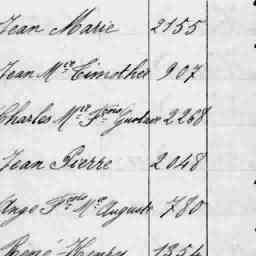 Jean Marie 2155
Jean Mie Timothée 907
Charles Mie Fçois Gustave 2268
Jean Pierre 2048
Ange Fçois Mie Auguste 780
René Henry 1354